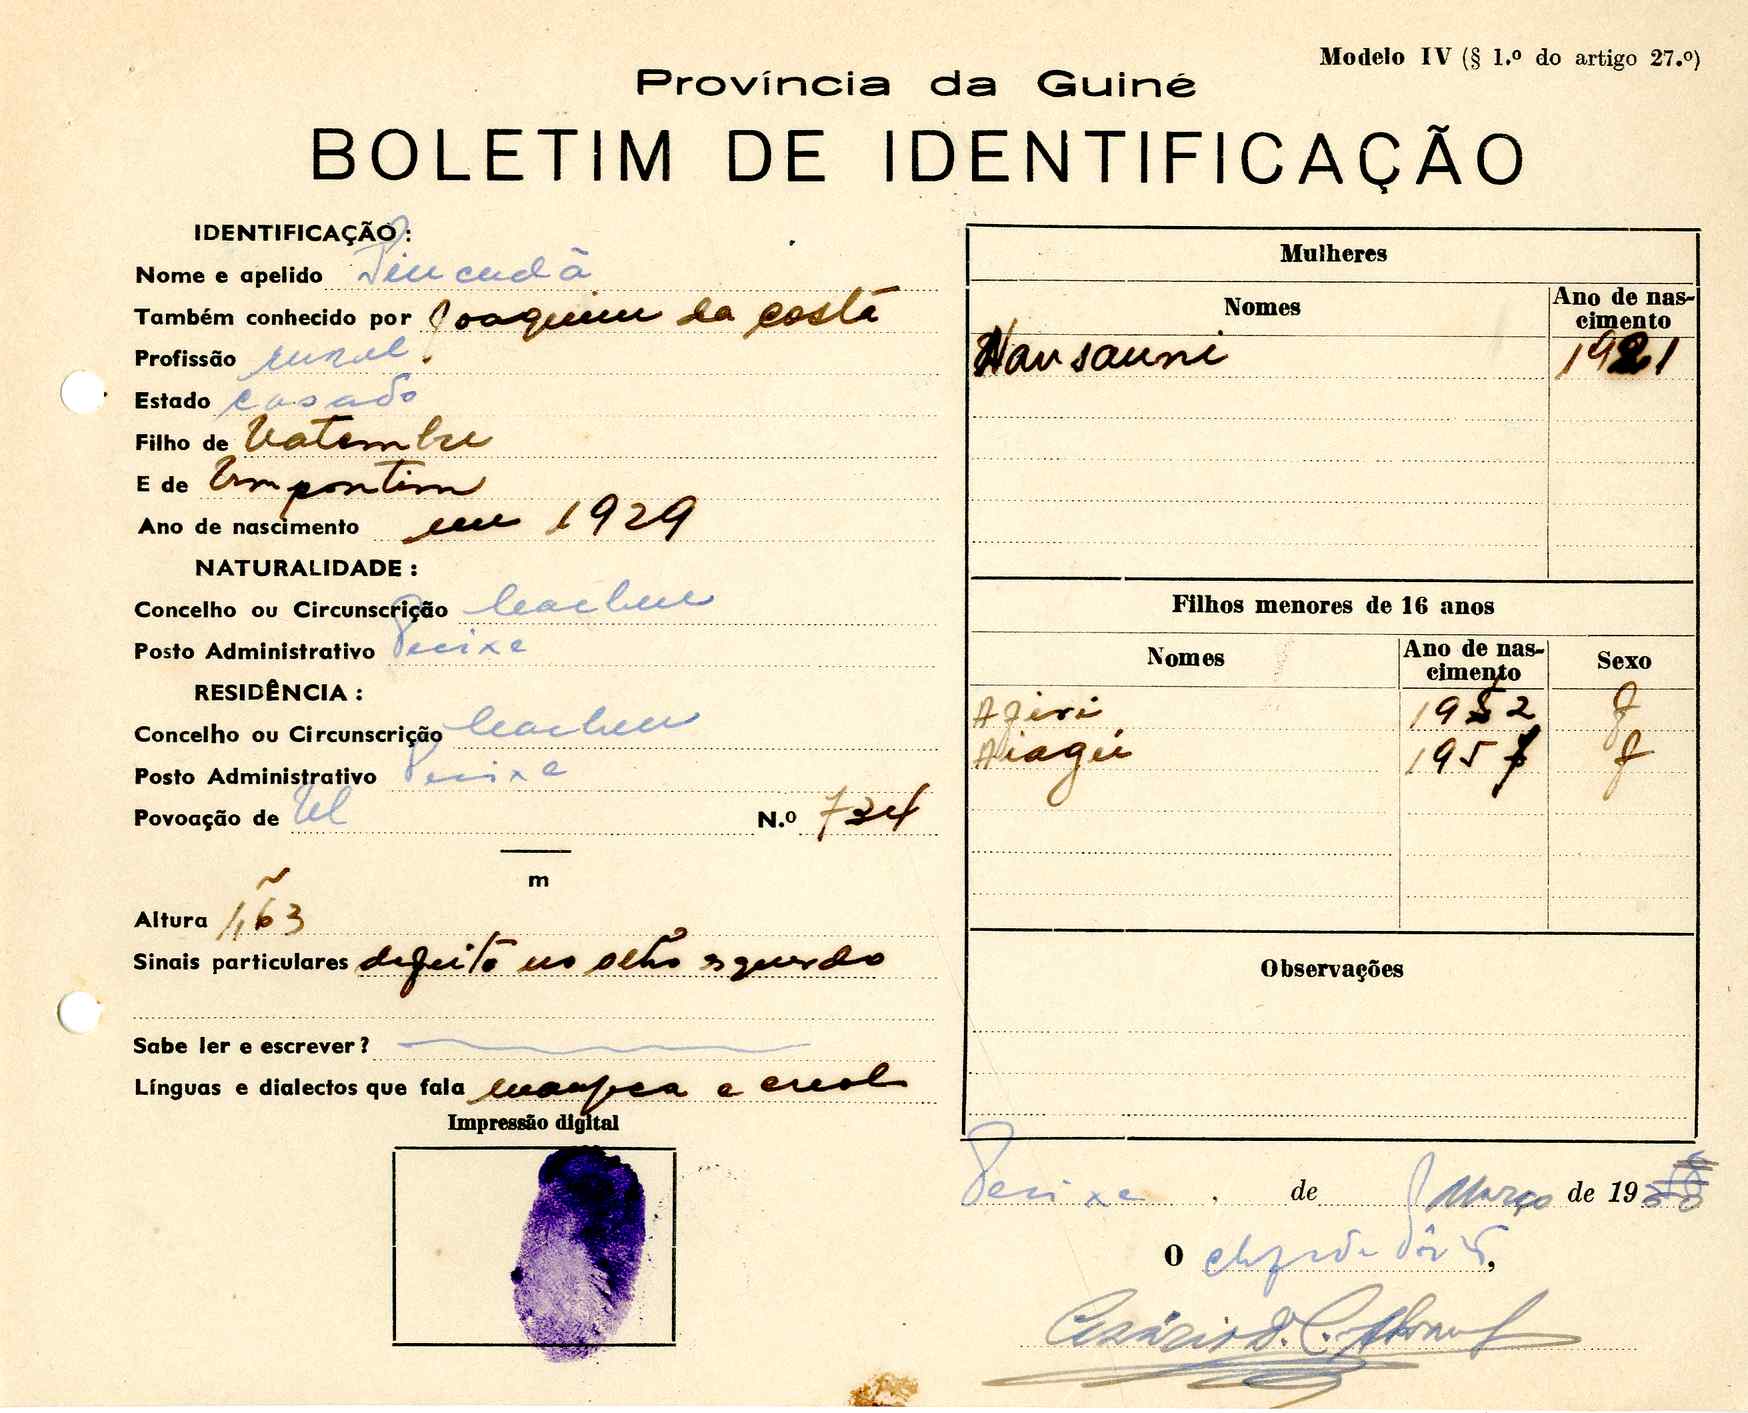 Modelo IV (§ 1.º do artigo 27.º)
Província da Guiné
BOLETIM DE IDENTIFICAÇÃO
IDENTIFICAÇÃO:
Nome e apelido
Também conhecido por Joaquim da costa
Profissão rural
Estado casado
Filho de
E de Umpontim
Ano de nascimento em 1929
NATURALIDADE:
Concelho ou Circunscrição Cacheu
Posto Administrativo Pecixe
RESIDÊNCIA:
Concelho ou Circunscrição Cacheu
Posto Administrativo Pecixe
Povoação de N.º 734
m
Altura 1,63
Sinais particulares defeito no olho esquerdo
Sabe ler e escrever?
Línguas e dialectos que fala e creol
Impressão digital
Mulheres
Nomes Ano de nas-
cimento
1921
Filhos menores de 16 anos
Nomes Ano de nas-
cimento Sexo
1952 f
1957 f
Observações
Pecixe, de Março de 19
O chefe de Pôsto,